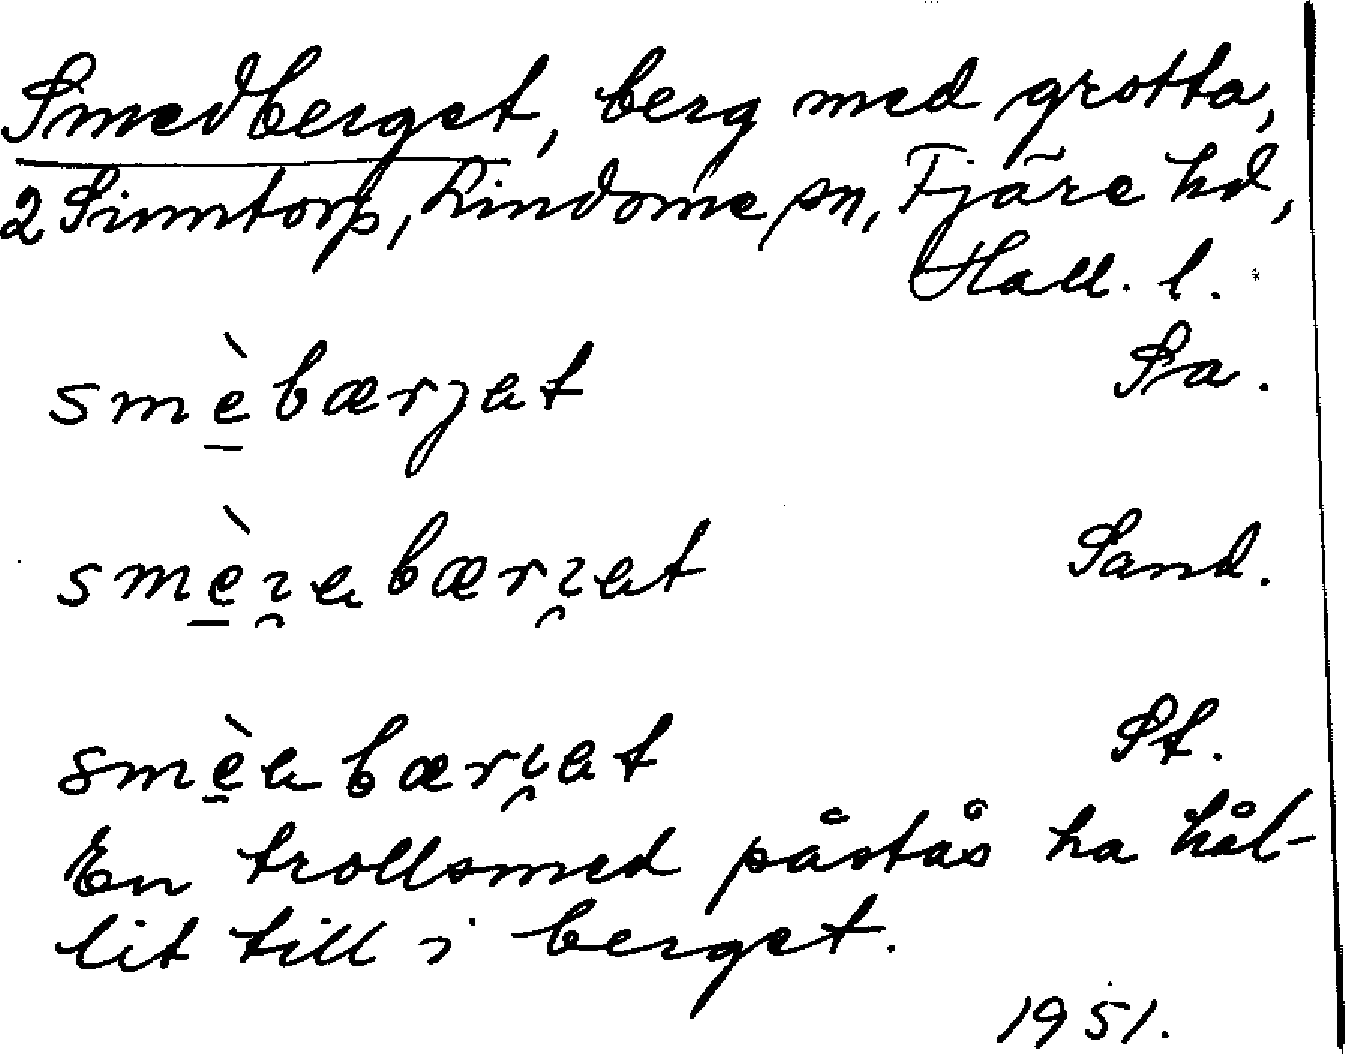 Smedberget, berg med grotta,
2 Sinntorp, Lindome sn, Fjäre hd,
Hall. l.
smè̱bærjet Sa.
smè̱ı̯ebærı̯et Sand.
smè̱ebærı̯et St.
En trollsmed påstås ha hål-
lit till i berget.
1951.